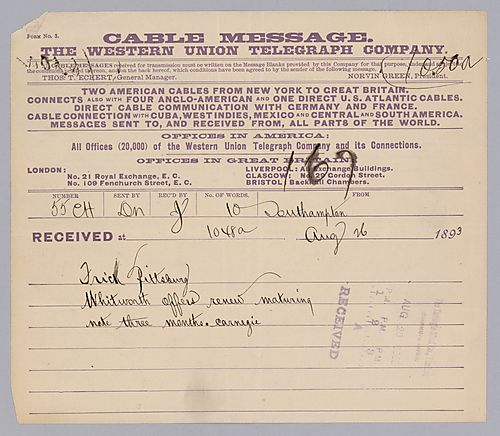 FORM No. 3.
CABLE MESSAGE.
THE WESTERN UNION TELEGRAPH COMPANY.
CABLE MESSAGES received for transmission must be written on the Message Blanks provided by this Company for that purpose, under
the conditions and on the back hereof, which conditions have been agreed to by the sender of the following message.
THOS. T. ECKERT, General Manager.
NORVIN GREEN, President.
1050a
TWO AMERICAN CABLES FROM NEW YORK TO GREAT BRITAIN.
CONNECTS ALSO WITH FOUR ANGLO-AMERICAN AND ONE DIRECT U.S. ATLANTIC CABLES.
DIRECT CABLE COMMUNICATION WITH GERMANY AND FRANCE.
CABLE CONNECTION WITH CUBA, WEST INDIES, MEXICO AND CENTRAL AND SOUTH AMERICA.
MESSAGES SENT TO, AND RECEIVED FROM, ALL PARTS OF THE WORLD.
OFFICES IN AMERICA:
All Offices (20,000) of the Western Union Telegraph Company and its Connections.
OFFICES IN GREAT BRITAIN:
LONDON:
No. 21 Royal Exchange, E. C.
No. 109 Fenchurch Street, E. C.
LIVERPOOL: Exchange Buildings.
GLASGOW: No. 29 Gordon Street.
BRISTOL: Backhall Chambers.
NUMBER SENT BY REC'D BY No. OF WORDS.
55 CH Dn J 10 Southampton
RECEIVED at 1048a Aug 26 1893
Frick Pittsburg
Whitworth offers renew maturing
note three months. carnegie
AUG
RECEIVED